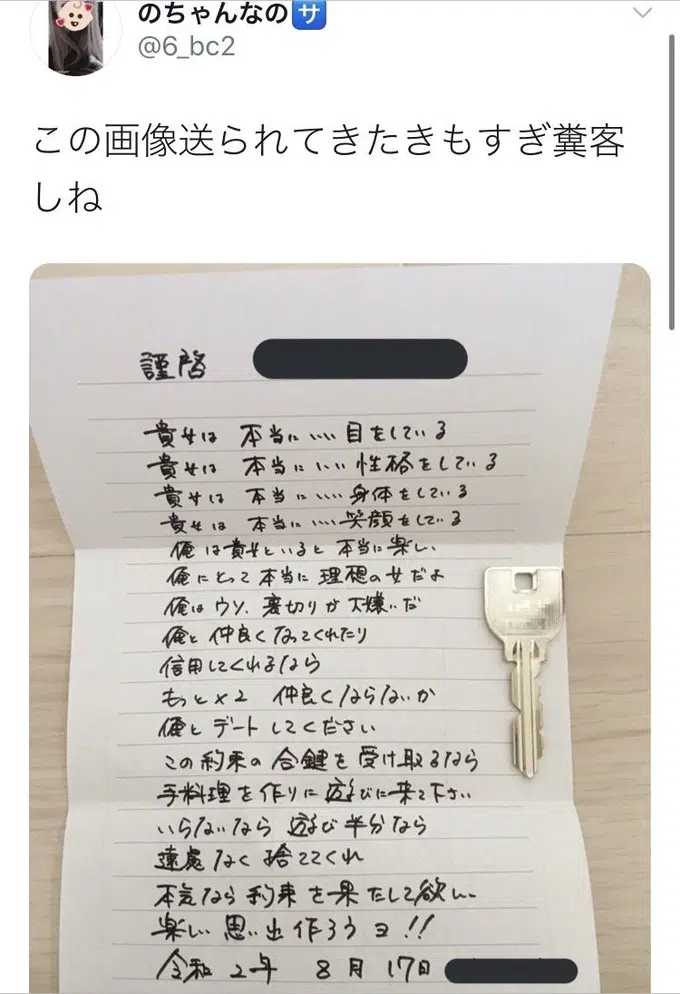 のちゃんなの🈂️
@6_bc2
この画像送られてきたきもすぎ糞客
しね
謹啓
貴女は 本当に いい 目をしている
貴女は 本当に いい 性格をしている
貴女は 本当に いい 身体をしている
貴女は 本当に いい 笑顔をしている
俺は貴女といると 本当に楽しい
俺にとって本当に 理想の女だよ
俺は ウソ、裏切りが大嫌いだ
俺と 仲良くなってくれたり
信用してくれるなら
もっと×2 仲良くならないか
俺と デート してください
この約束の 合鍵を 受け取るなら
手料理を 作りに 遊びに来て下さい
いらないなら 遊び半分なら
遠慮なく 捨ててくれ
本気なら 約束を果たして欲しい
楽しい 思い出作ろうヨ!!
令和 2年 8月 17日